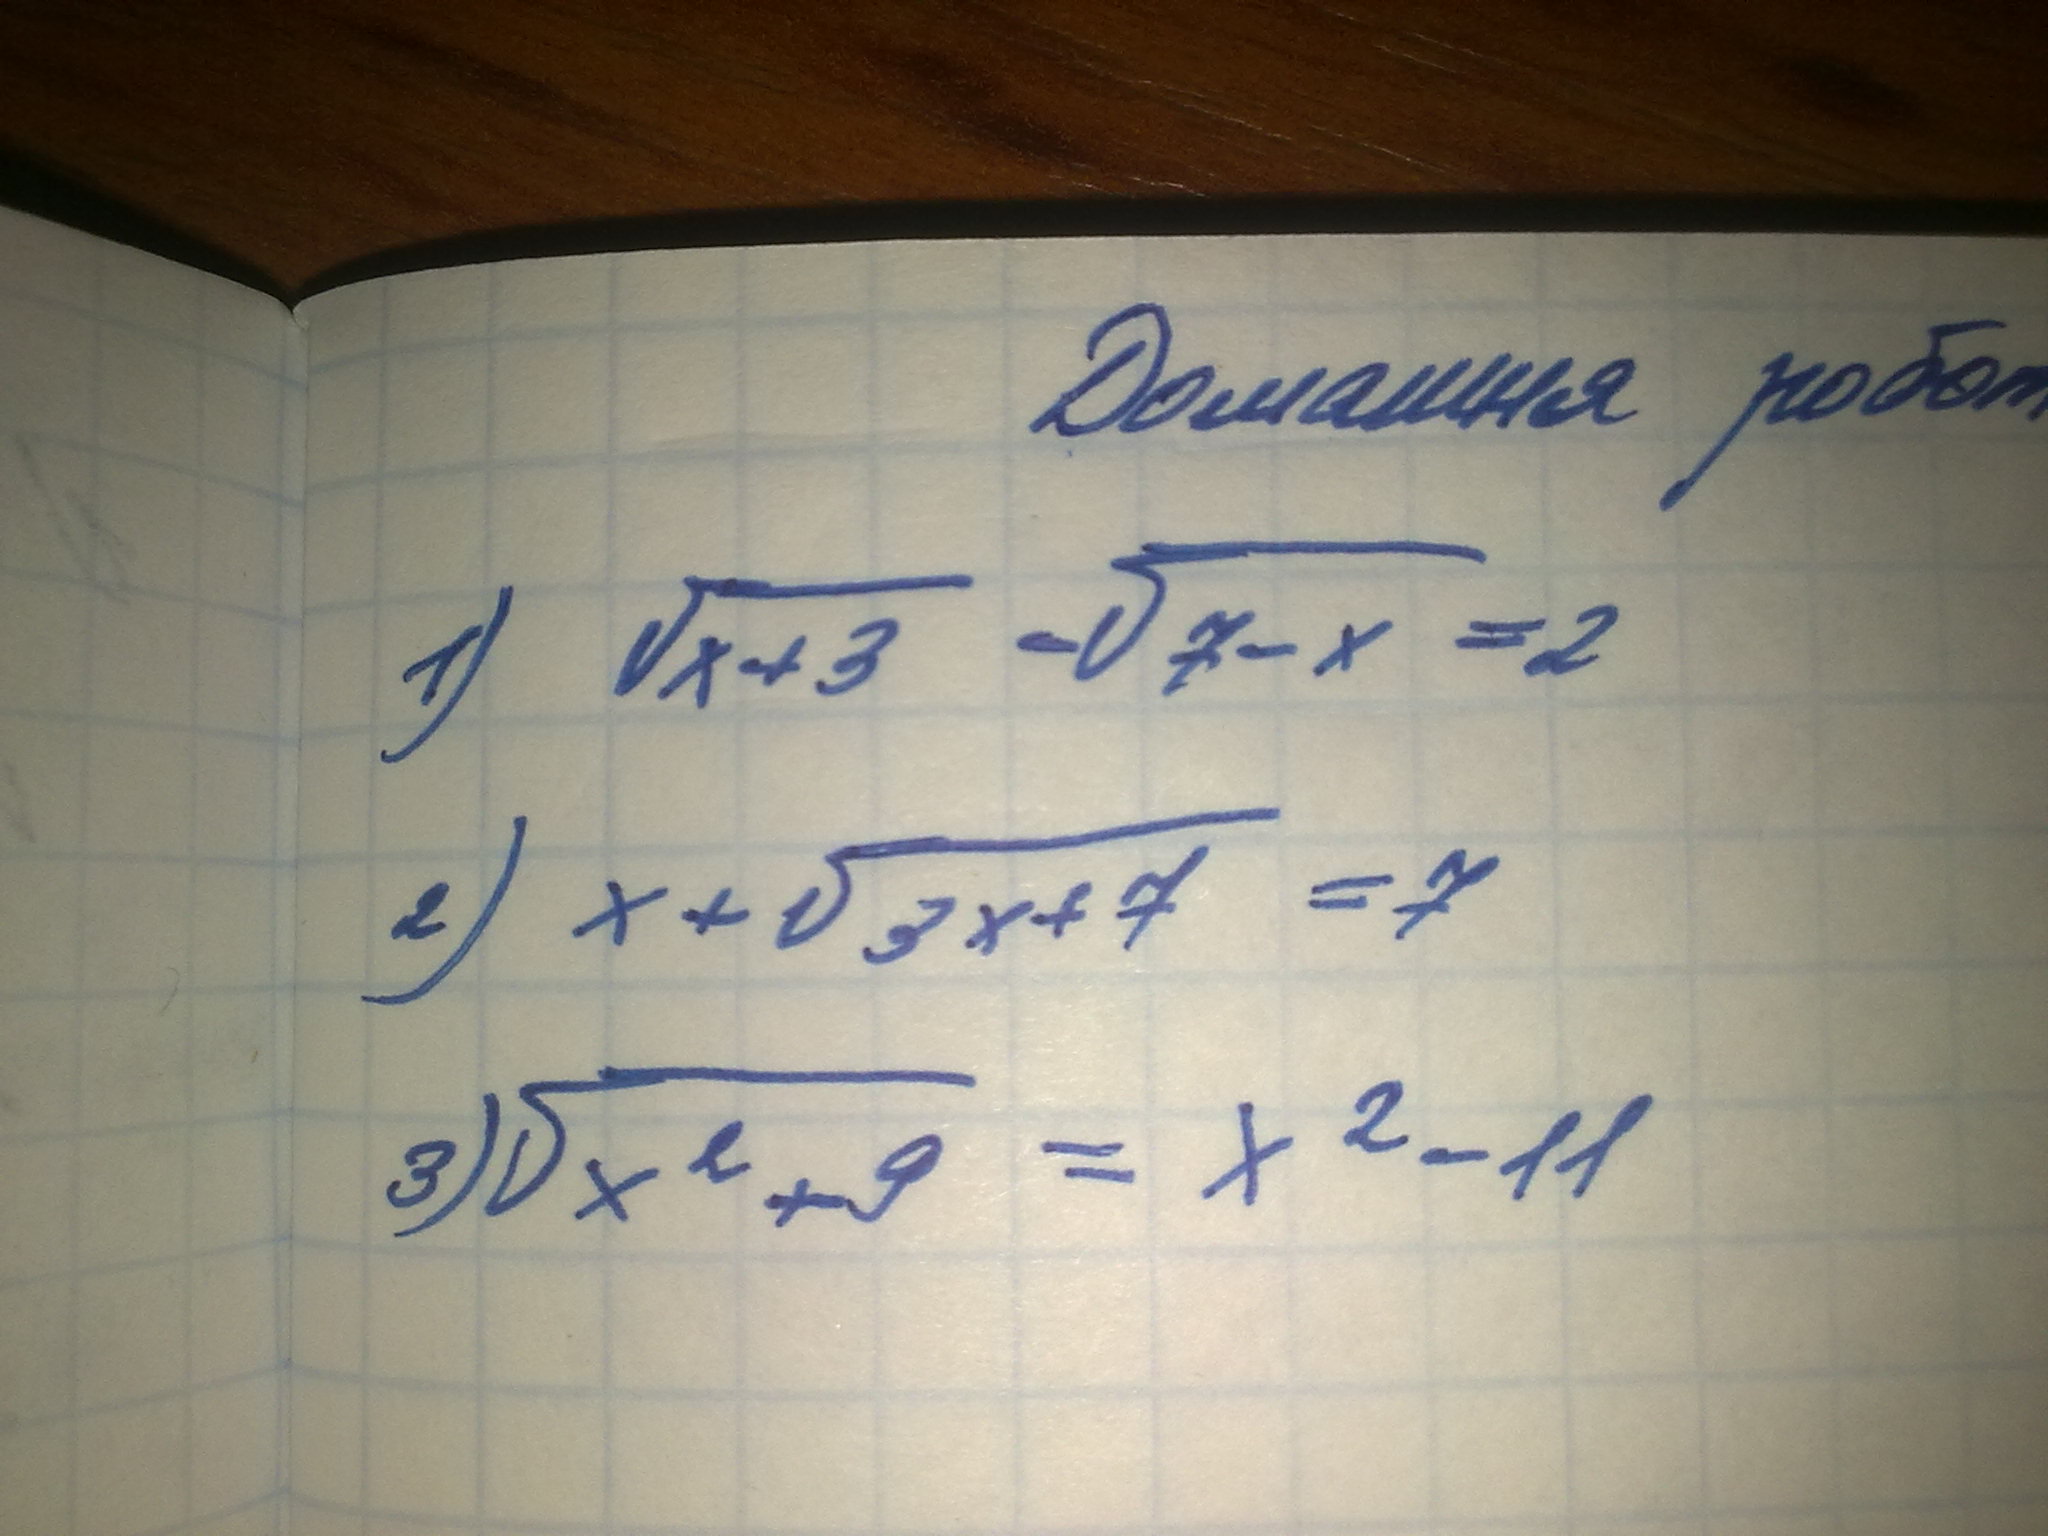 Домашня робот
1) √x+3 -√7-x =2
2) x+√3x+7 =7
3) √x²+9 = x²-11